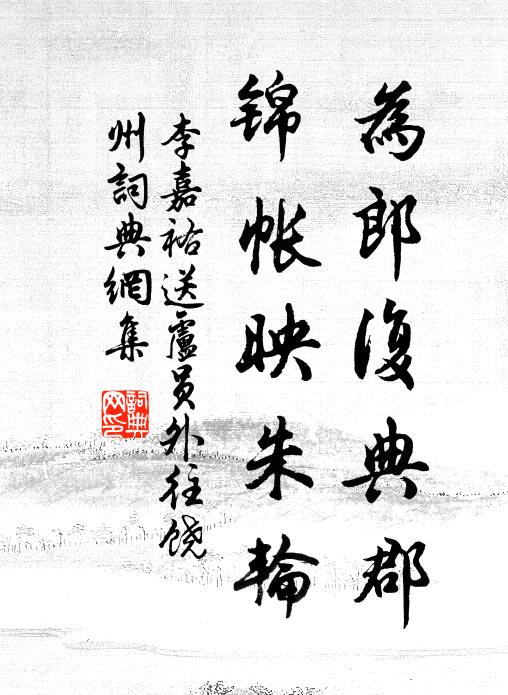 為郎復典郡
錦帐映朱輪
李嘉祐送盧员外往饶
州詞典網集
詞典
网印